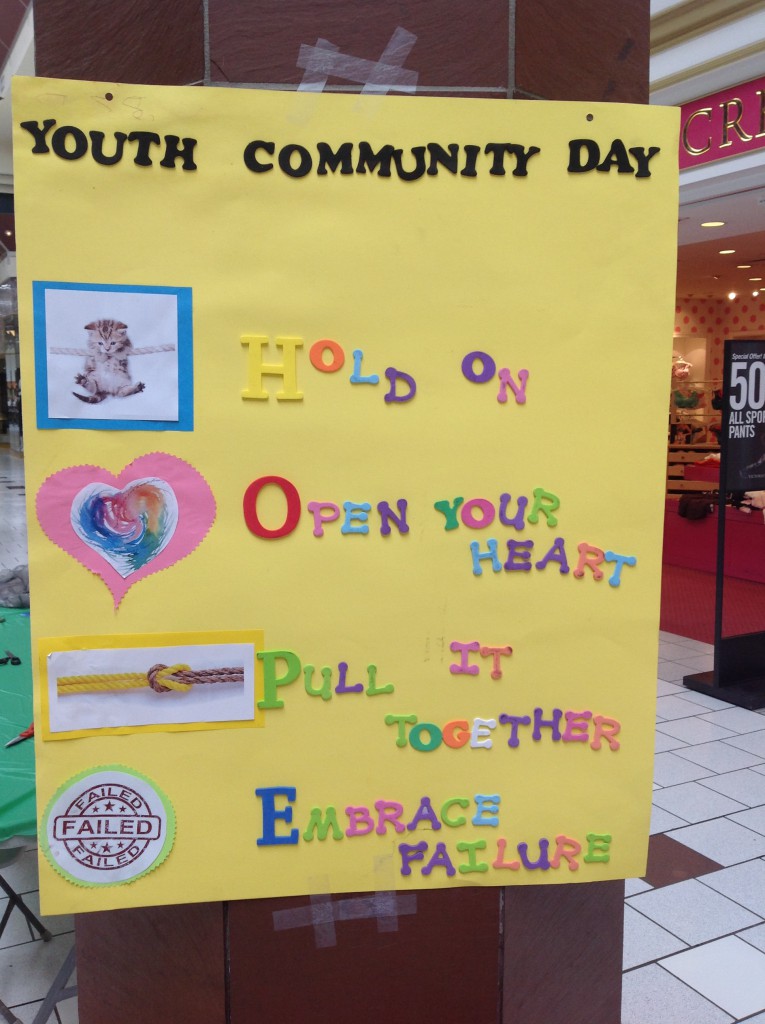 YOUTH COMMUNITY DAY
HOLD ON
OPEN YOUR
HEART
PULL IT
TOGETHER
FAILED
FAILED
FAILED
EMBRACE
FAILURE
CRE
Special Offer!
50
ALL SPO
PANTS